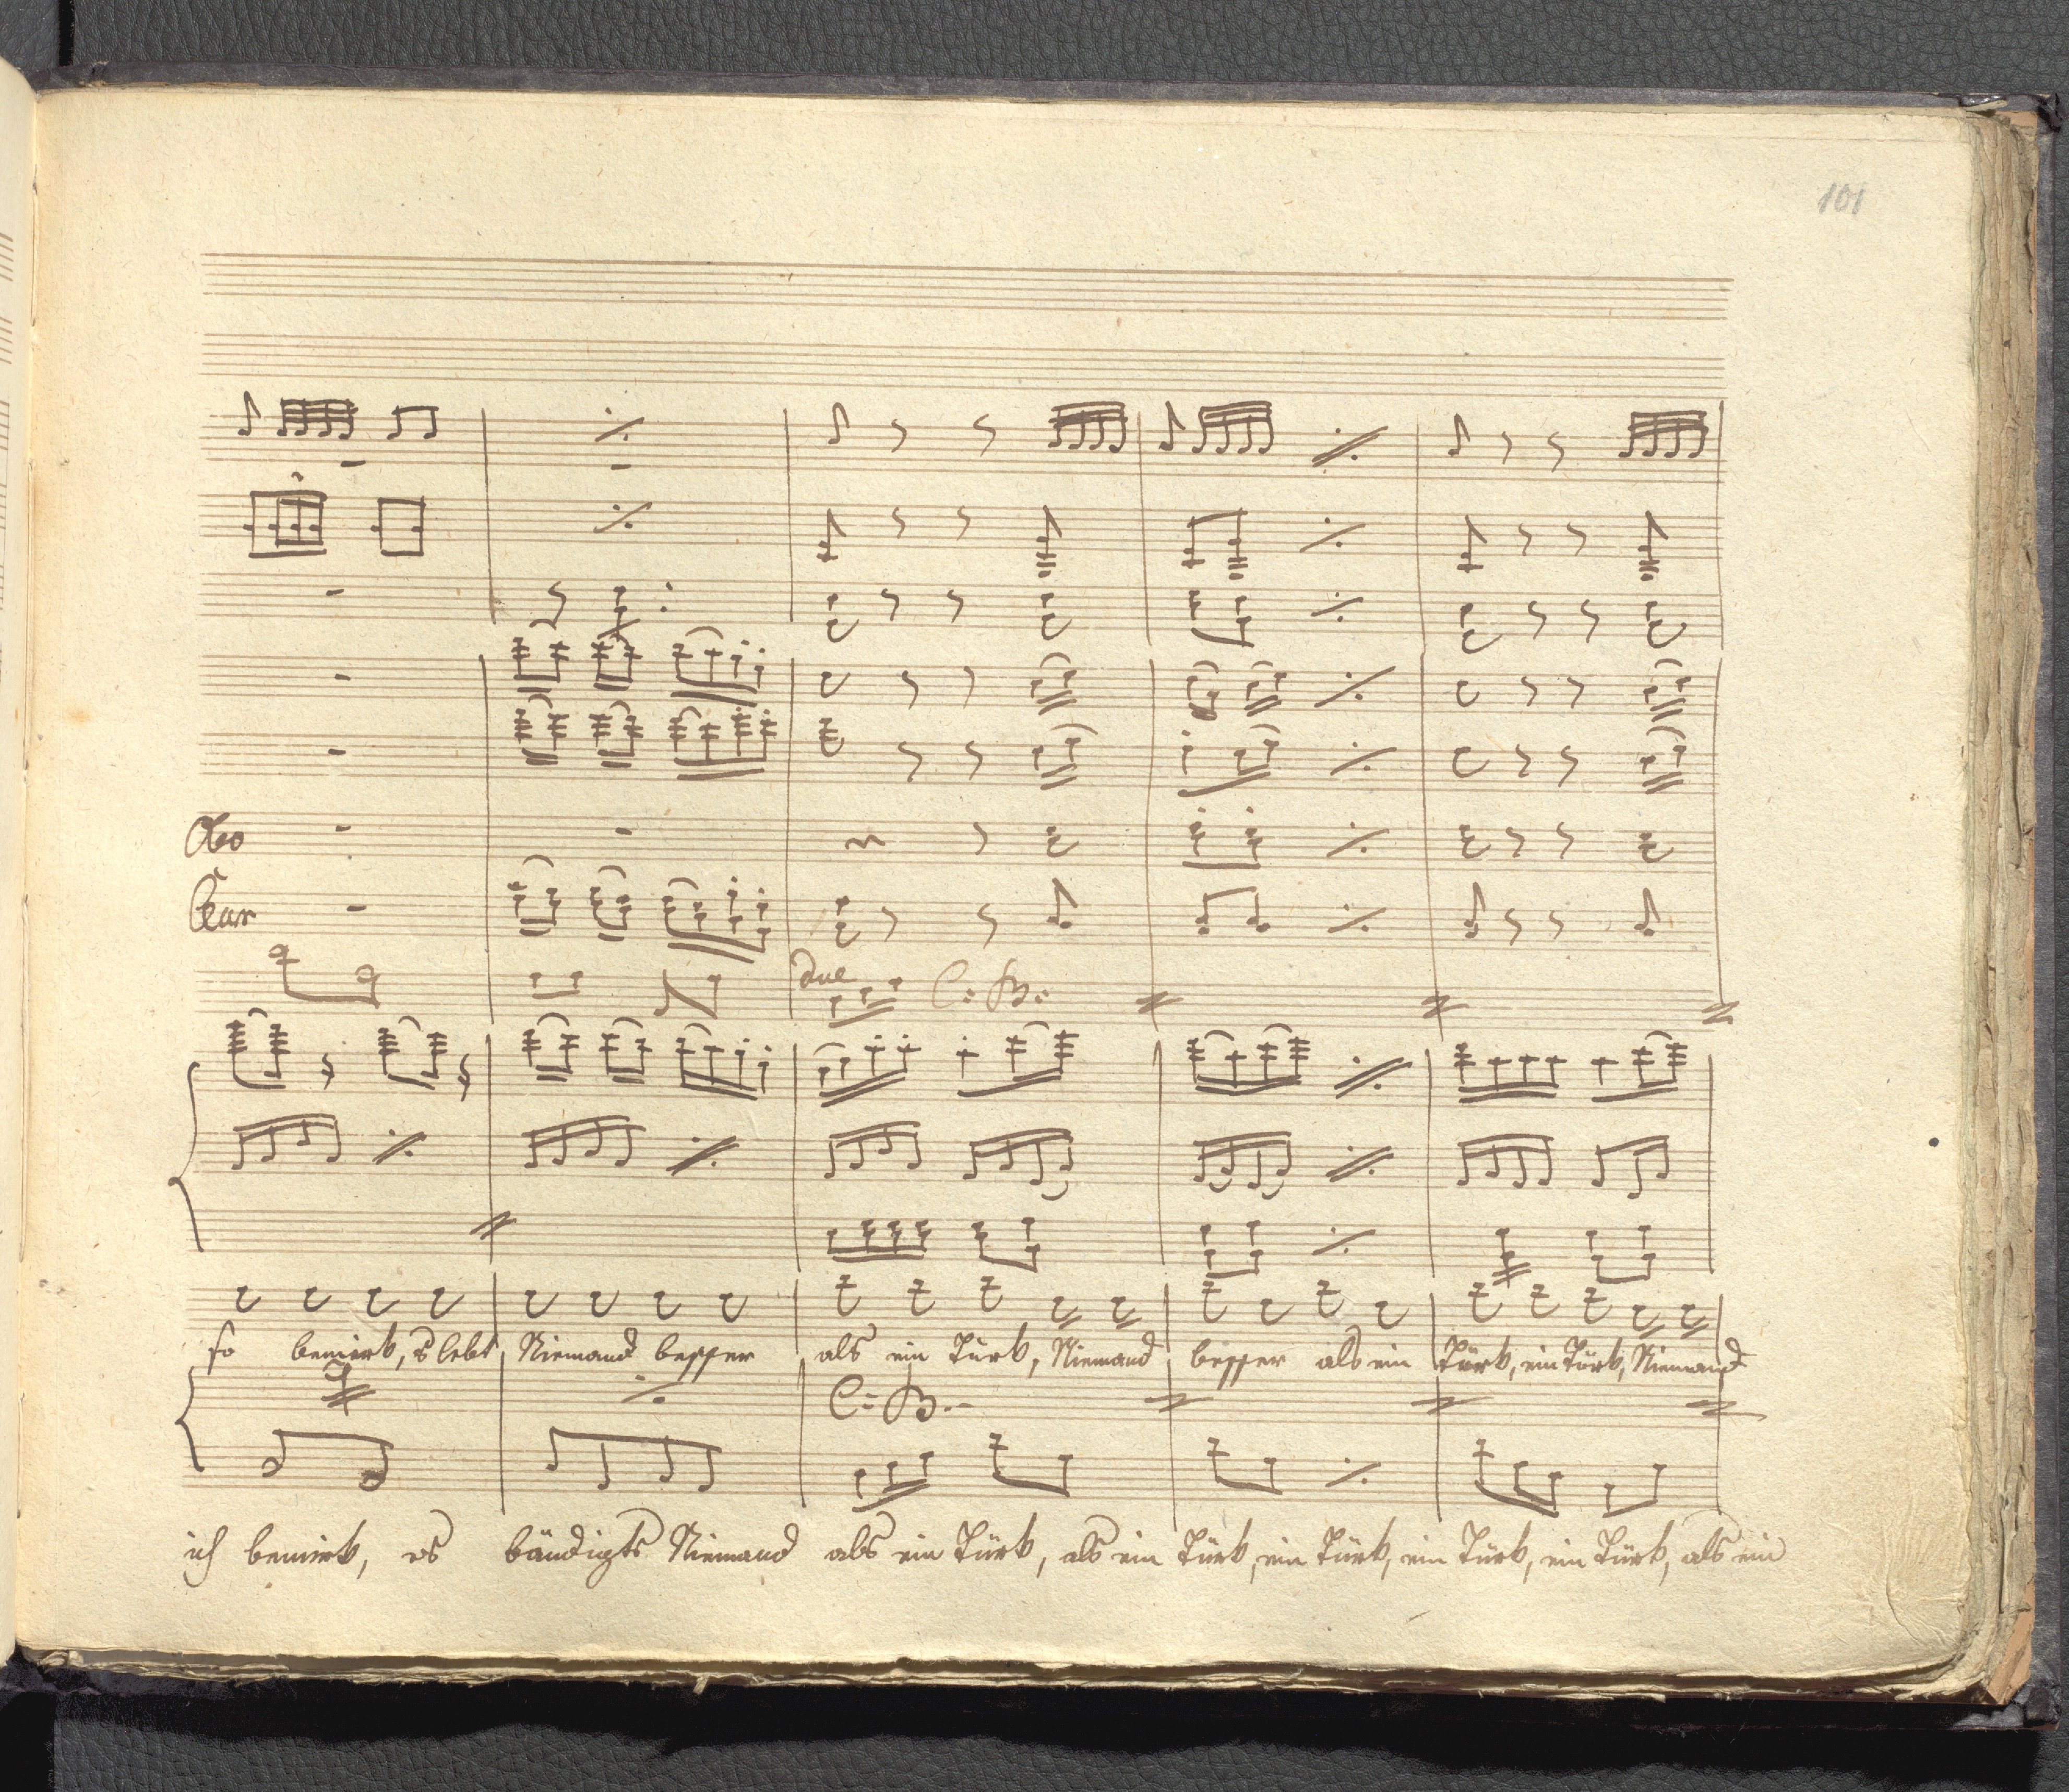 101
Obo
Clar
due C: B:
so bemerk, es lebt Niemand besser als ein Türk, Niemand besser als ein Türk, ein Türk, Niemand
C: B:
ich bemerk, es bändigts Niemand als ein Türk, als ein Türk, ein Türk, ein Türk, ein Türk, als ein